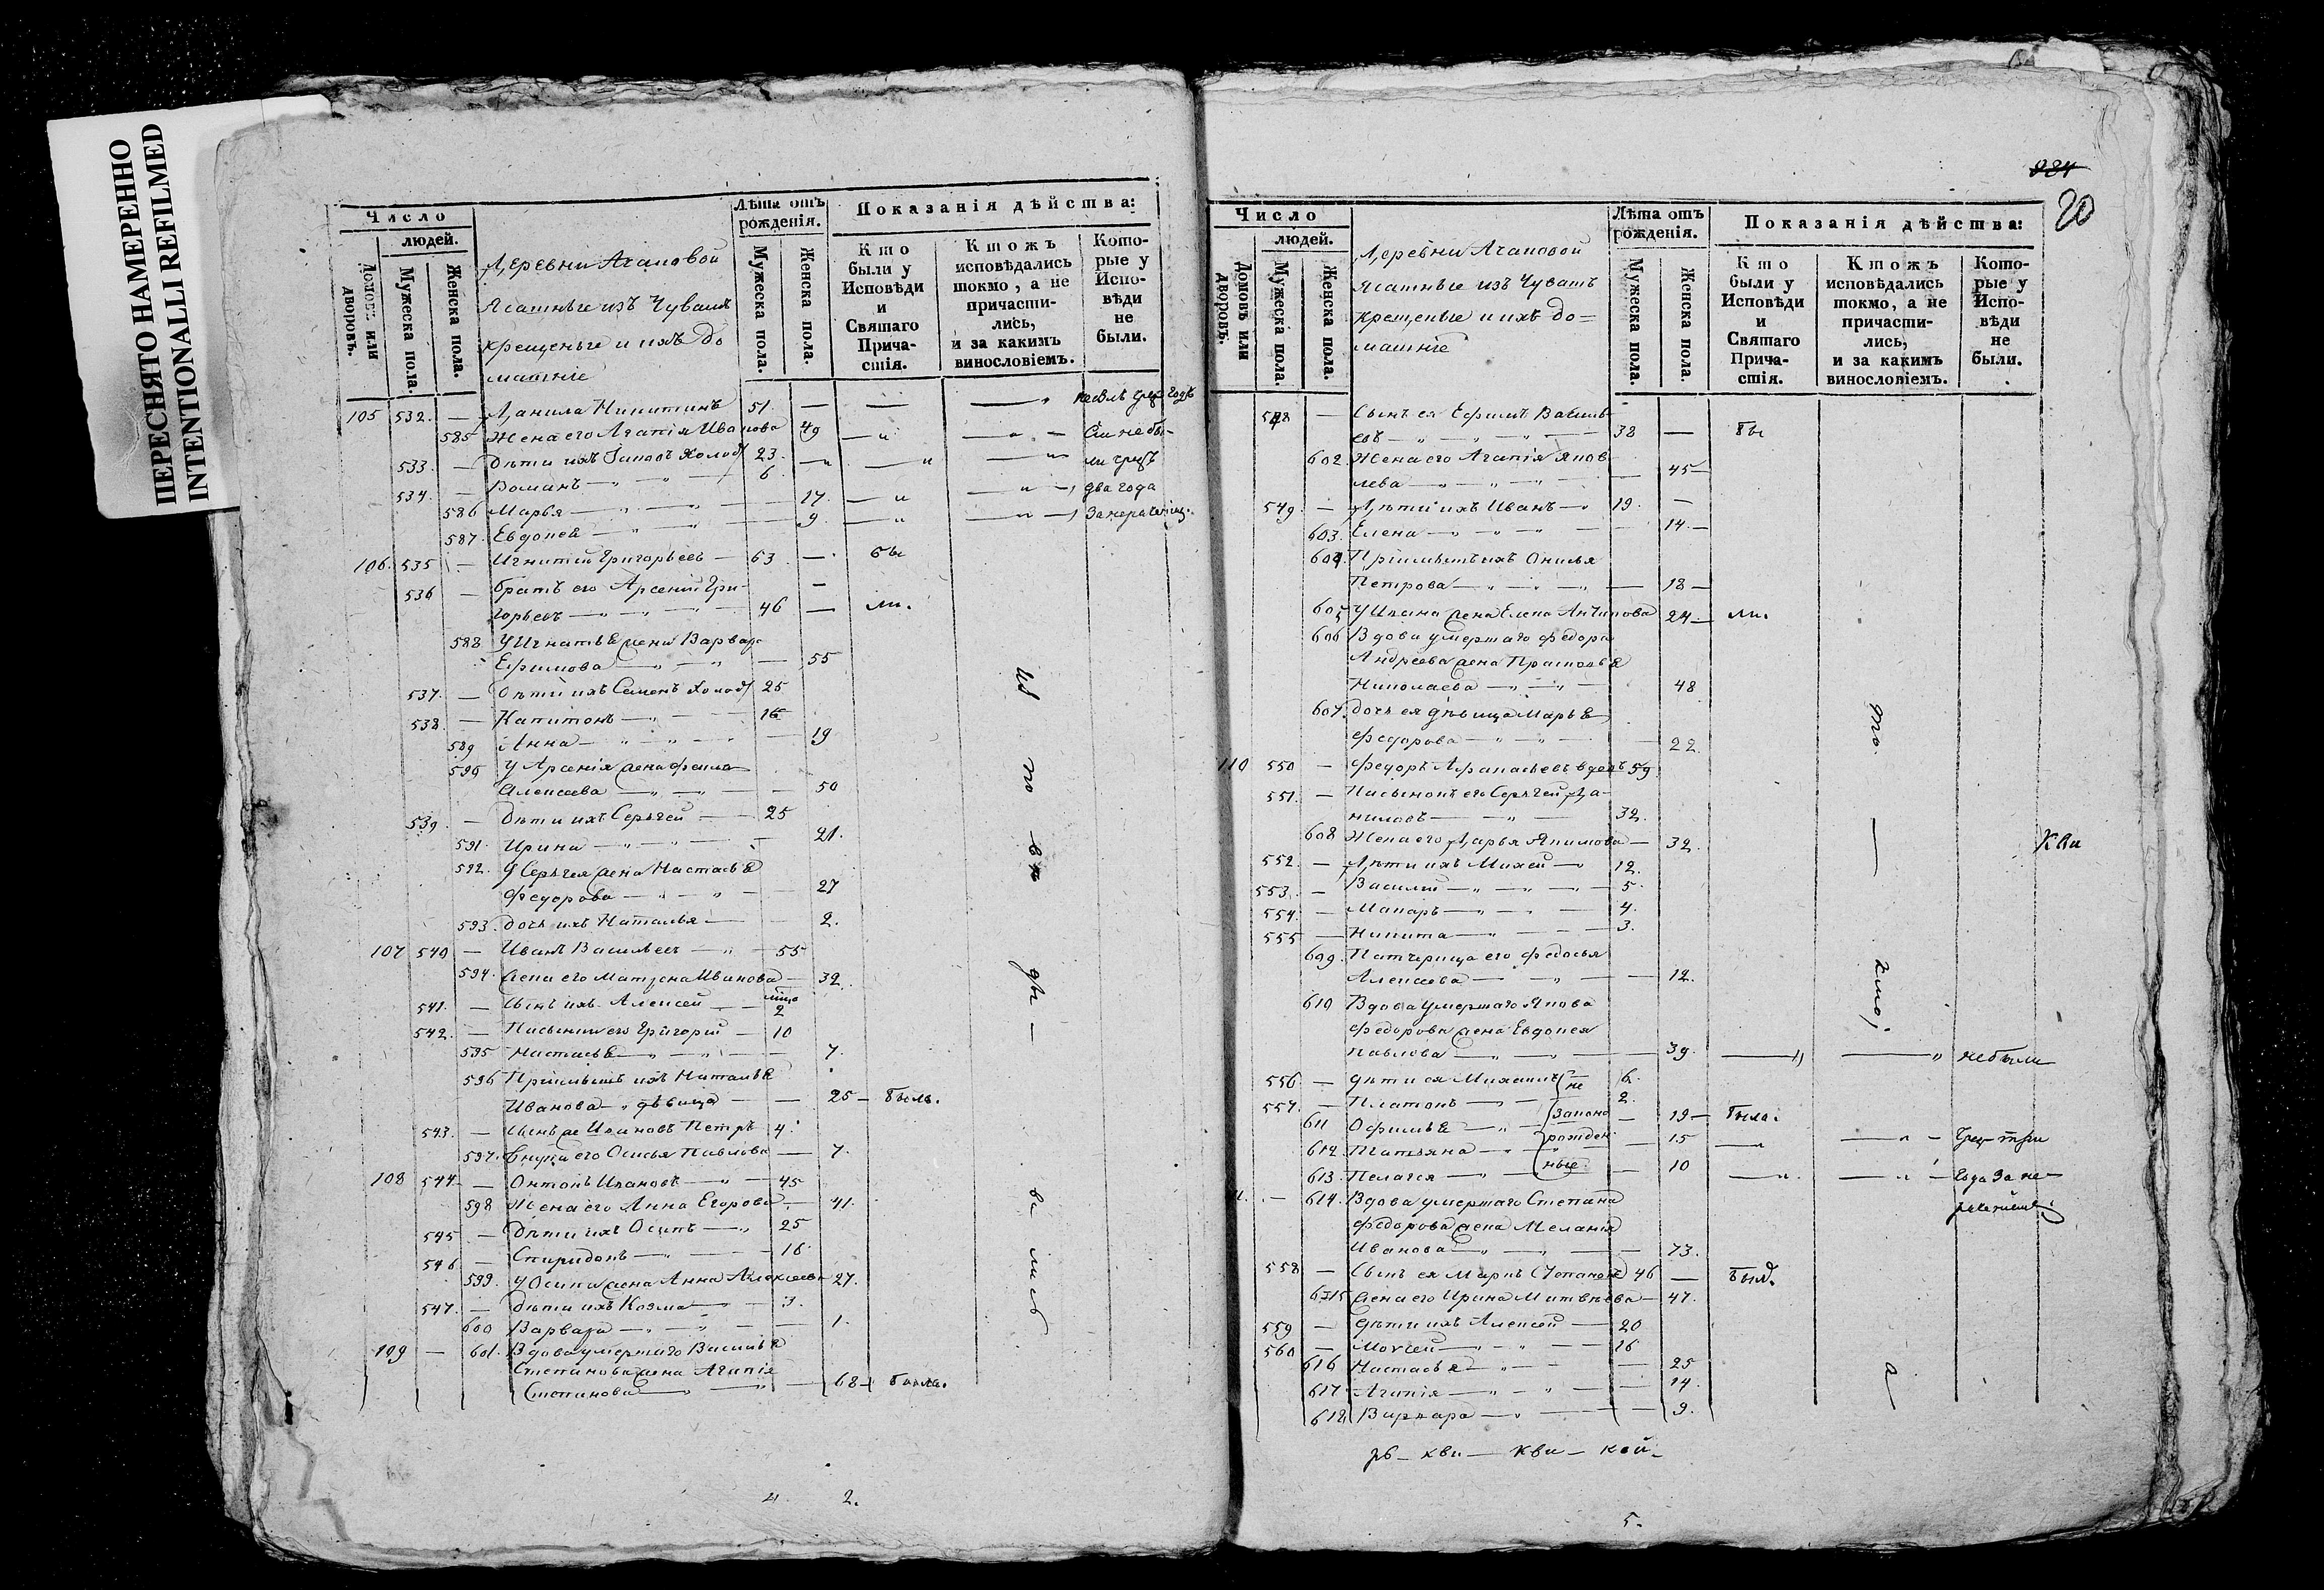 ПЕРЕСНЯТО НАМЕРЕННО
INTENTIONALLI REFILMED
Число
людей.
Домовъ или дворовъ.
Мужеска пола.
Женска пола.
Деревни Ачаповой
Ясашные изъ Чувашъ
крещеные и ихъ до
машніе
Лѣта отъ рожденія.
Мужеска пола.
Женска пола.
Показанія дѣйства:
Кто были у Исповѣди и Святаго Причастія.
Ктожъ исповѣдались токмо, а не причастились, и за какимъ винословіемъ.
Которые у Исповѣди не были.
105 532. — Данила Никитинъ 51. —
585 Жена его Агапія Иванова 49
533. — Дѣти ихъ 23.
534. — Романъ 6
586 Марья 17.
587. Евдокея 9.
два года
106. 535 — Игнатий Григорьевъ 63 — бы
536 — братъ его Арсеній Гри-
горьевъ 46 — ли.
588 У Игнатья жена Варвара
Ефимова 55
537. — Дѣти ихъ Семенъ холос 25
538. — Капитонъ 16
589 Анна 19
590 У Арсенія жена
Алексеева 50
539. — Дѣти ихъ Сергей 25
591. Ирина 21.
592. У Сергея жена Настасья
Федорова 27
593. дочь ихъ Наталья 2.
107 540 — Иванъ Васильевъ 55
594. Жена его Матрена Иванова 32.
541. — Сынъ ихъ Алексей 2
542. — Пасынки его Григорій 10
595 Настасья 7.
596 Пріимышъ ихъ Наталья
Иванова девица 25 — была.
543. — Сынъ ее Ивановъ Петръ 4.
597. Внука его Павлова 7.
108 544 — Антонъ Ивановъ 45
598 Жена его Анна Егорова 41.
545 — Дѣти ихъ Осипъ 25
546 — Спиридонъ 16
599. У Осипа жена Анна Алексеева 27.
547. — Дѣти ихъ Козма 3.
600 Варвара 1.
109 — 601. Вдова умершаго Василья
Степанова жена Агапія
Степанова 68 — была.
4 2.
984
20
Число
людей.
Домовъ или дворовъ.
Мужеска пола.
Женска пола.
Деревни Ачаповой
Ясашные изъ Чувашъ
крещеные и ихъ до=
машніе
Лѣта отъ рожденія.
Мужеска пола.
Женска пола.
Показанія дѣйства:
Кто были у Исповѣди и Святаго Причастія.
Ктожъ исповѣдались токмо, а не причастились, и за какимъ винословіемъ.
Которые у Исповѣди не были.
548 — Сынъ ея Ефимъ Василь-
евъ 38 — бы
602. Жена его Агапія Яков
лева 45
549. — Дѣти ихъ Иванъ 19. —
603. Елена 14.
604. Пріимышъ ихъ
Петрова 18
605 У Ивана жена Елена Антипова 24 — ли.
606 Вдова умершаго Федора
Андреева жена Прасковья
Николаева 48
607. дочь ея девица Марья
Федорова 22.
110 550 — Федоръ Афанасьевъ вдовъ 59
551. — Пасынокъ его Сергей Да-
ниловъ 32.
608 Жена его Дарья Якимова 32.
552. — Дѣти ихъ 12.
553. — Василій 5.
554. — Макаръ 4.
555 — Никита 3.
609. Патчерица его Федосья
Алексеева 12.
610 Вдова умершаго Якова
Федорова жена Евдокея
Павлова 39. не были
556 — дѣти ея 6.
557. — Платонъ 2.
не законо рожденные
611 Офимья 19 — была.
612 Татьяна 15
613. Пелагея 10
614. Вдова умершаго Степана
Федорова жена Меланія
Иванова 73.
558 — Сынъ ея Маркъ Степановъ 46 —
615 Жена его Ирина Матвѣева 47.
559 — дѣти ихъ Алексей 20
560 — Моисей 16
616 Настасья 25
617. Агапія 14.
618 Варвара 9.
Кви
5.